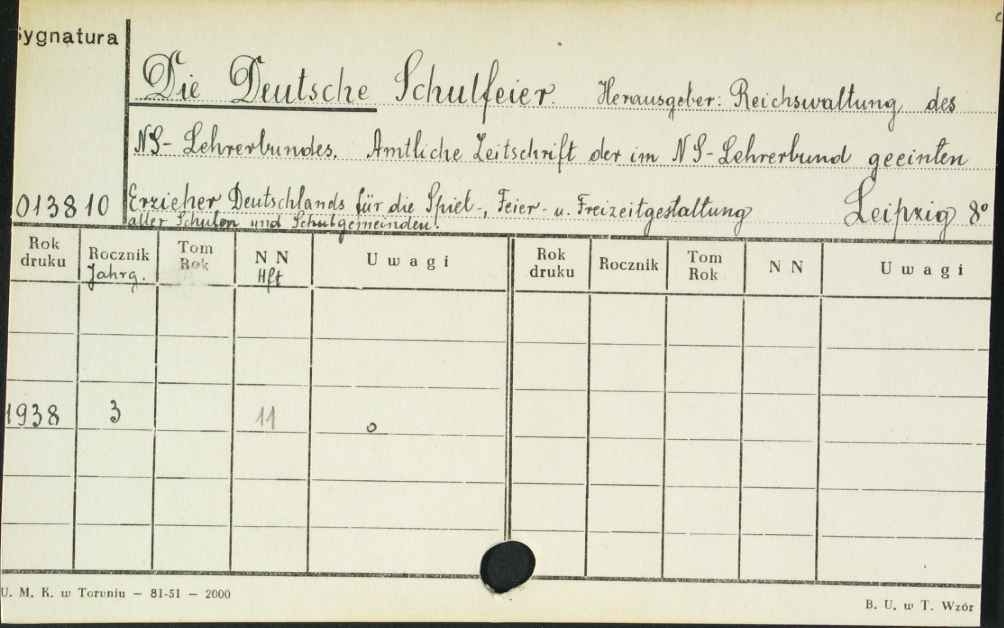 Sygnatura
Die Deutsche Schulfeier. Herausgeber: Reichswaltung des
NS-Lehrerbundes. Amtliche Zeitschrift der im NS-Lehrerbund geeinten
013810 Erzieher Deutschlands für die Spiel-, Feier- u. Freizeitgestaltung Leipzig 8°
aller Schulen und Schulgemeinden.
Rok druku Rocznik Jahrg. Tom Rok N N Hft Uwagi Rok druku Rocznik Tom Rok N N Uwagi
1938 3 11 o
U. M. K. w Toruniu — 81-51 — 2000
B. U. w T. Wzór